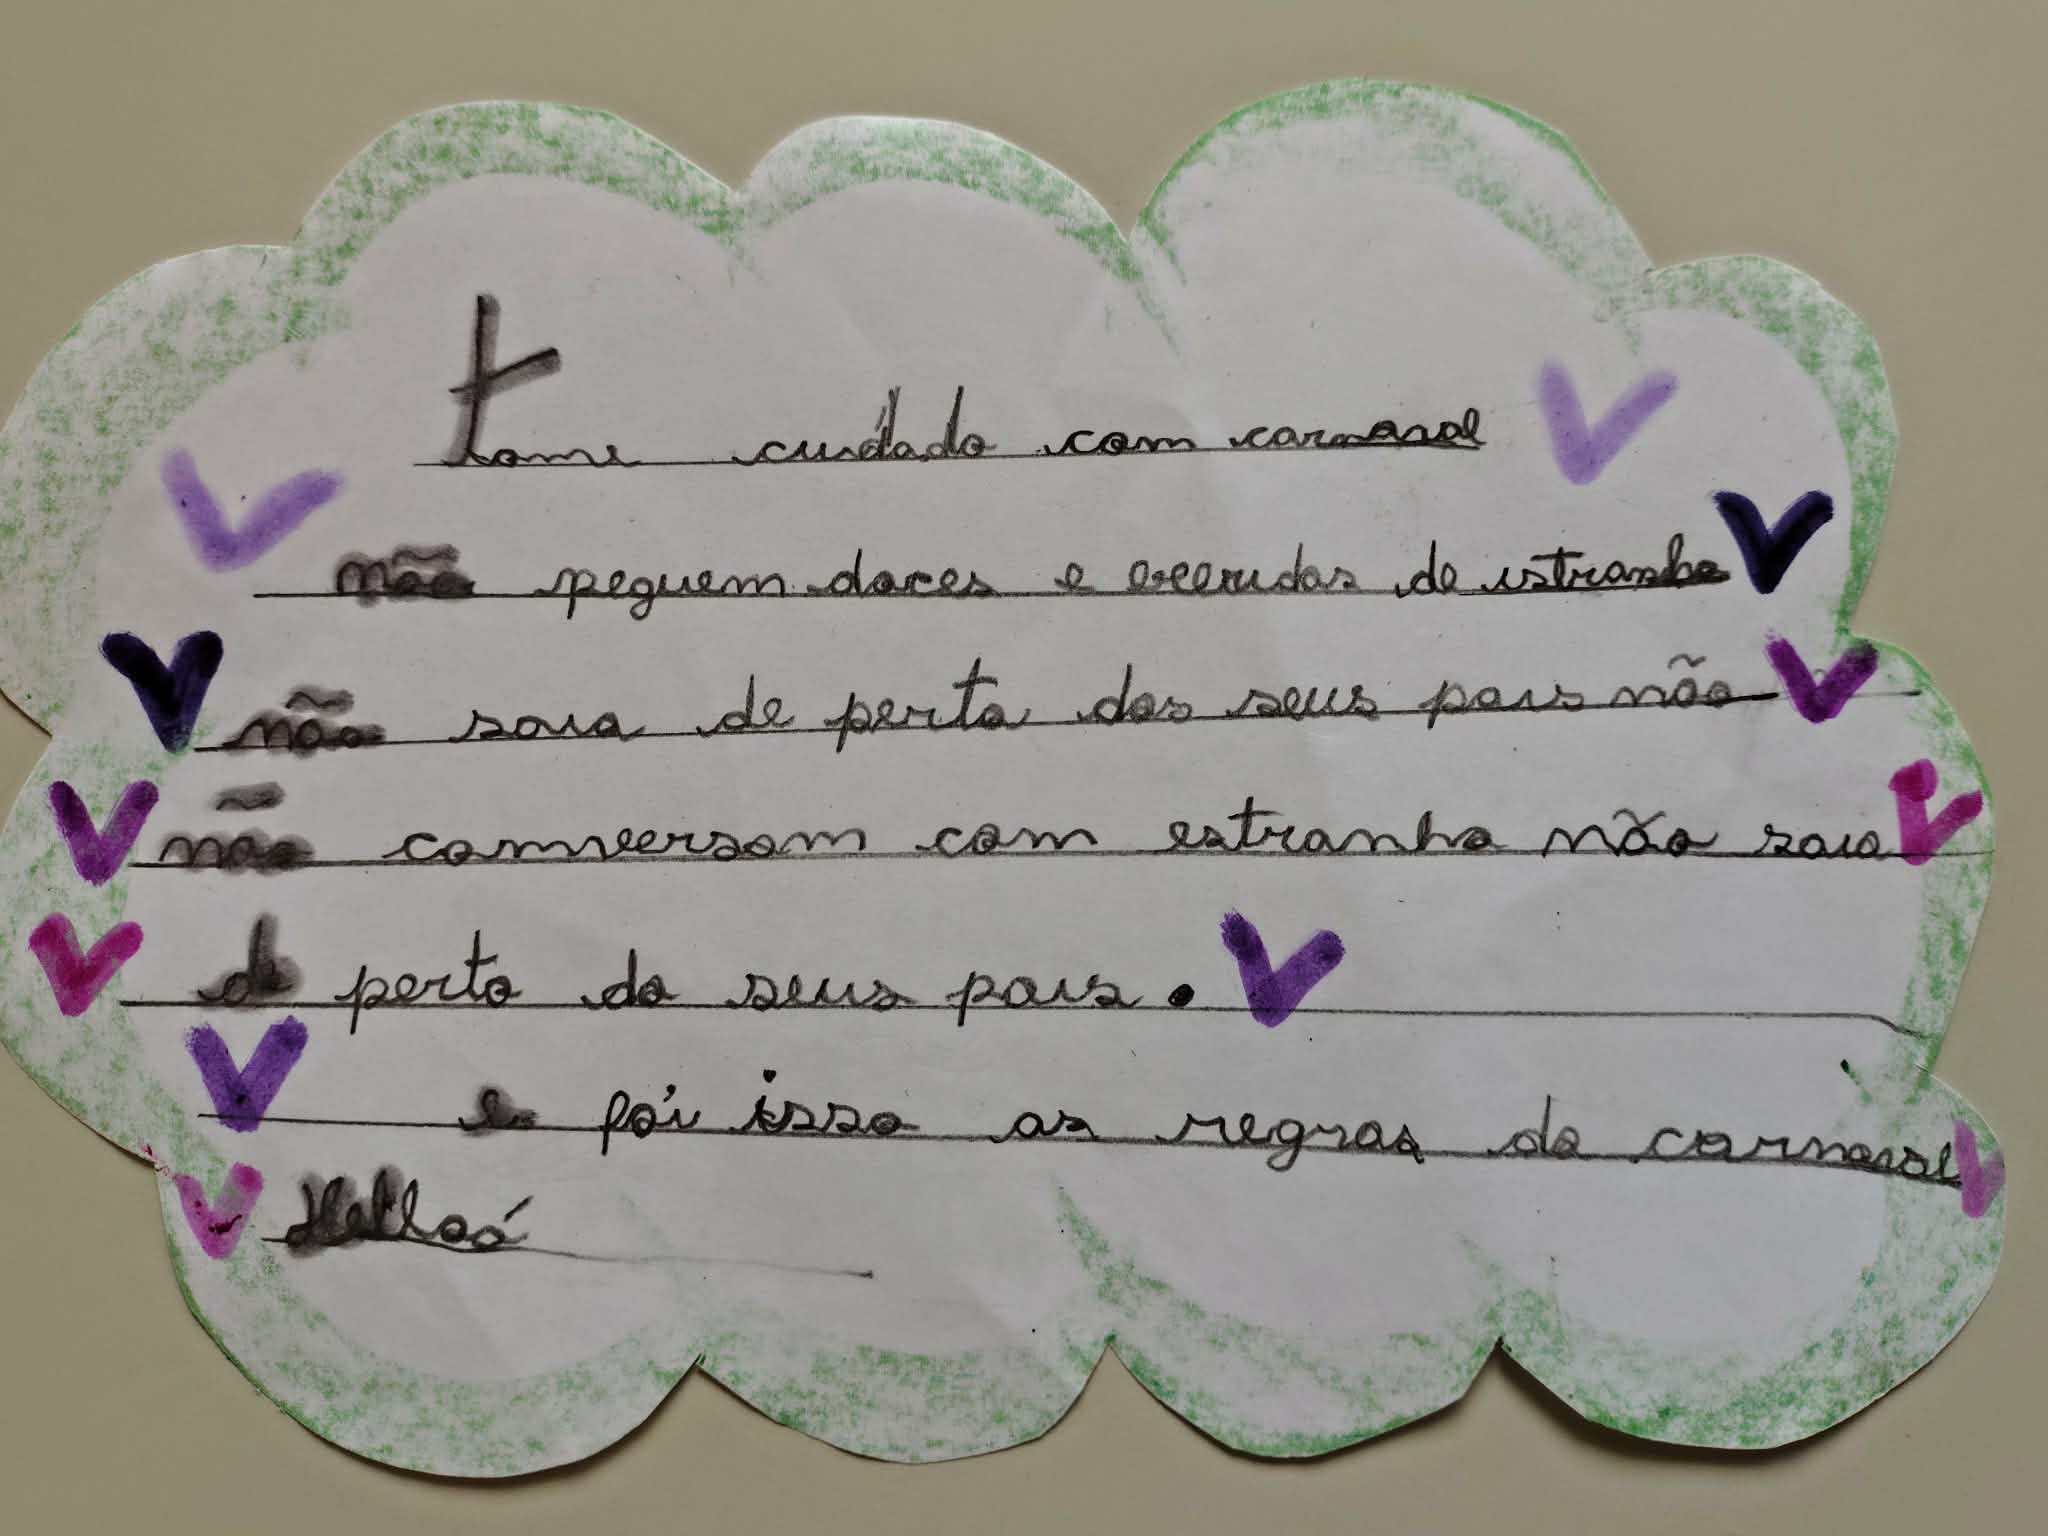 tome cuidado com carnaval
não peguem doces e de estranho
não saia de perto dos seus pais não
não comversam com estranho não saia
de perto do seus pais.
e foi isso as regras do carnaval